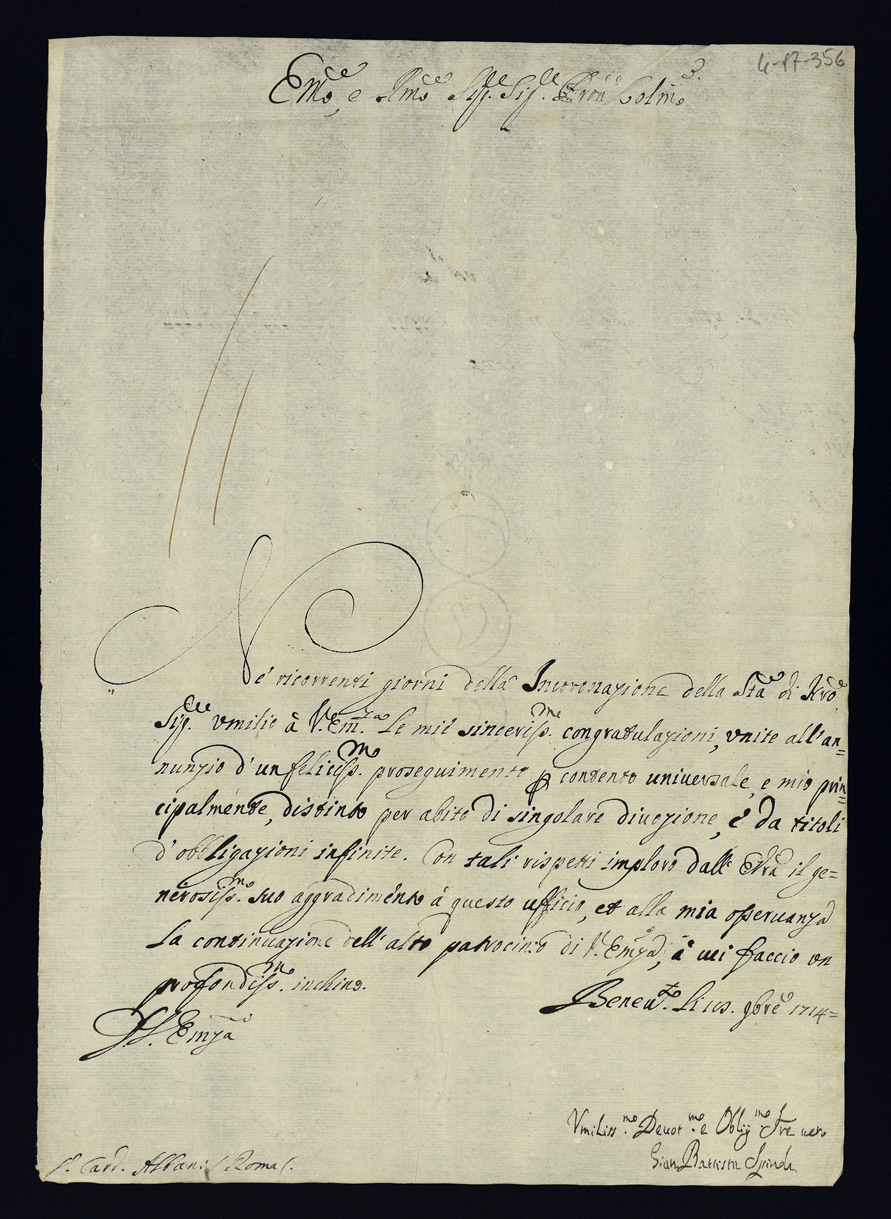 4-17-356
Emo, e Rmo Sig.re Sig.re Pron Colmo
Ne' ricorrenti giorni della Incoronazione della Stà di Nro
Sig.re umilio à V. Em.za le mie sinceriss.me congratulazioni, unite all'an=
nunzio d'un feliciss.mo proseguimento p contento universale, e mio prin=
cipalménte, distinto per abito di singolare divozione, é da titoli
d'obbligazioni infinite. Con tali rispetti imploro dall' E.V.ra il ge=
nerosiss.mo suo aggradiménto à questo ufficio, et alla mia osseruanza
la continuazione dell'alto patrocinio di V. Emza, à cui faccio un
profondiss.mo inchino.
Beneu.to li 25. 9bre 1714=
V. Emza
Vmiliss.mo Deuot.mo e Oblig.mo Sre uero
Gian Battista Spinola
S. Card. Albani (Roma (.